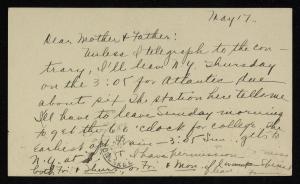 May 17.
Dear Mother & Father:
Unless I telegraph to the con-
trary, I'll leave N.Y. Thursday
on the 3:05 for Atlantic due
about six. The station here tells me
I'll have to leave Sunday morning
to get the 6 o'clock for college. The
earliest apt. train - 3:05 Sun. gets to
N.Y. at
both Fri & Thurs. or Fri & Mon